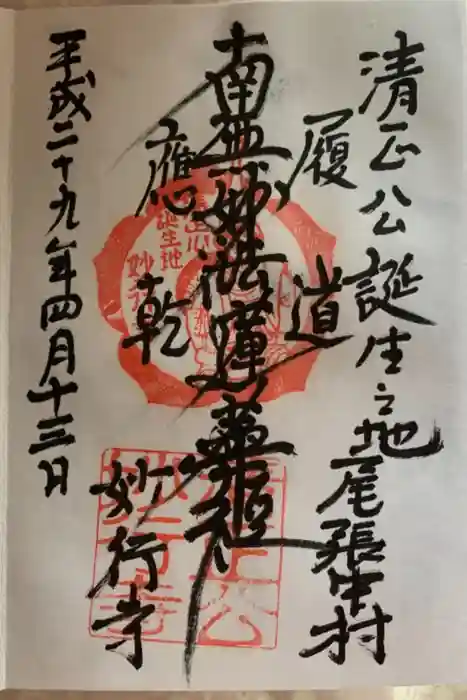 清正公誕生之地尾張中村
履道
南無妙法蓮華経
應乾
妙行寺
平成二十九年四月十三日
誕生地